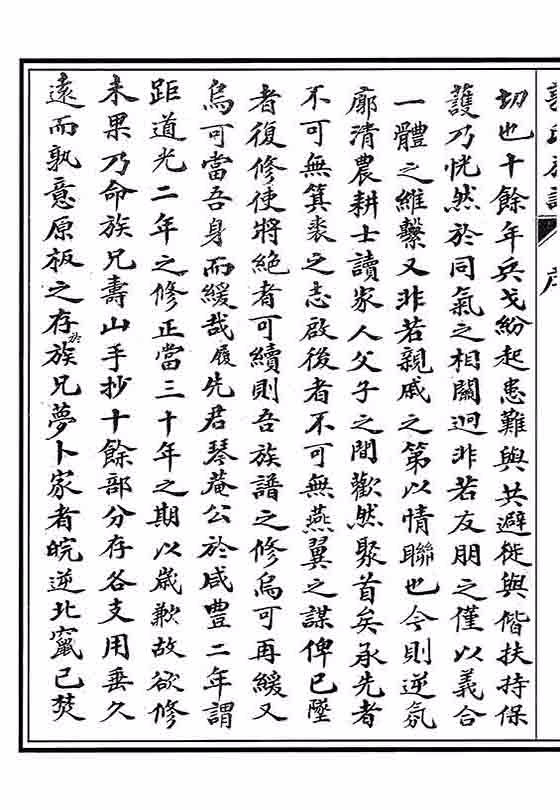 序
切也十餘年兵戈紛起患難與共避徙與偕扶持保
護乃恍然於同氣之相關迥非若友朋之僅以義合
一體之維繫又非若親戚之第以情聯也今則逆氛
廓清農耕士讀家人父子之間歡然聚首矣承先者
不可無箕裘之志啟後者不可無燕翼之謀俾已墜
者復修使將絕者可續則吾族譜之修烏可再緩又
烏可當吾身而緩哉履先君琴菴公於咸豐二年謂
距道光二年之修正當三十年之期以歲歉故欲修
未果乃命族兄壽山手抄十餘部分存各支用垂久
遠而孰意原板之存於族兄夢卜家者皖逆北竄已焚